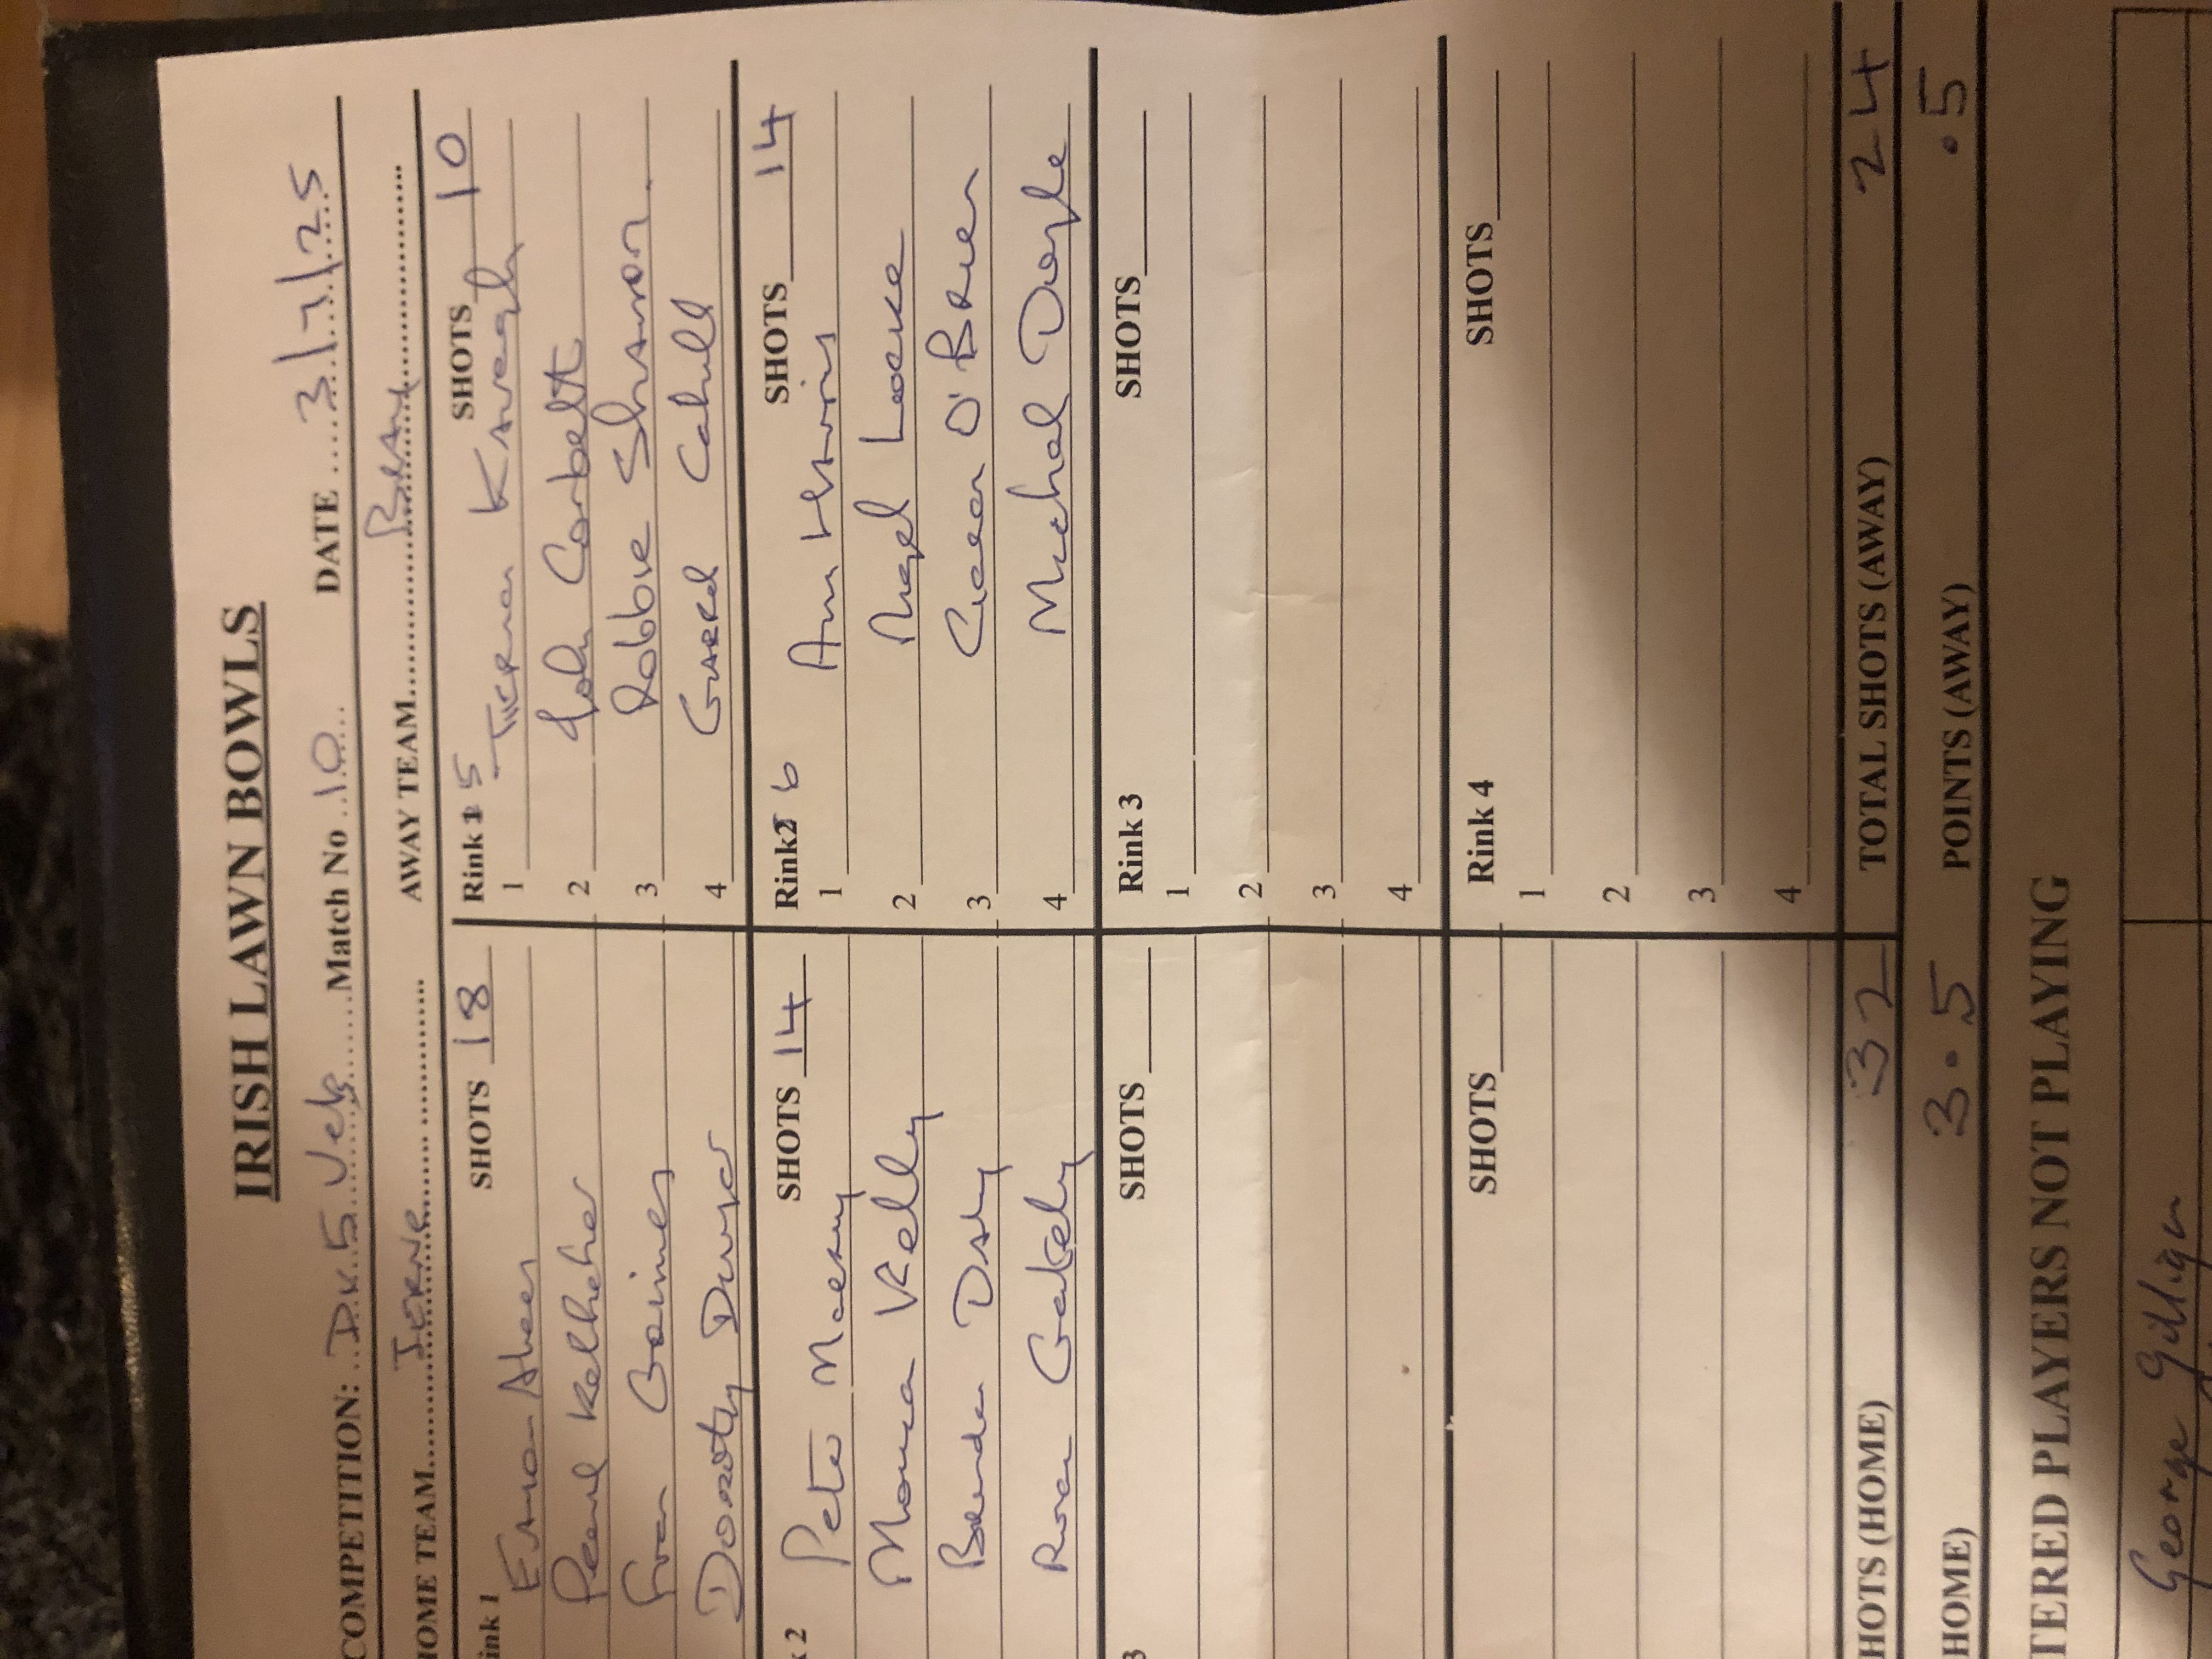 IRISH LAWN BOWLS
COMPETITION: Div 5 Match No 10 DATE 3/7/25
HOME TEAM IERNE AWAY TEAM BRAY
ink 1 SHOTS 18 Rink 5 SHOTS 10
Eamon Ahern 1 Tiernan Kavanagh
Pearl Kelleher 2 John Corbett
Fran Gaines 3 Robbie Shannon
Dorothy Dwyer 4 Gerard Cahill
2 SHOTS 14 Rink 6 SHOTS 14
Peter 1 Ann
Monica Kelly 2 Nigel Locke
Brenda Daly 3 Ciaran O'Brien
Gakely 4 Michael Doyle
3 SHOTS Rink 3 SHOTS
1
2
3
4
SHOTS Rink 4 SHOTS
1
2
3
4
HOTS (HOME) 32 TOTAL SHOTS (AWAY) 24
HOME) 3.5 POINTS (AWAY) .5
TERED PLAYERS NOT PLAYING
George Gilligan